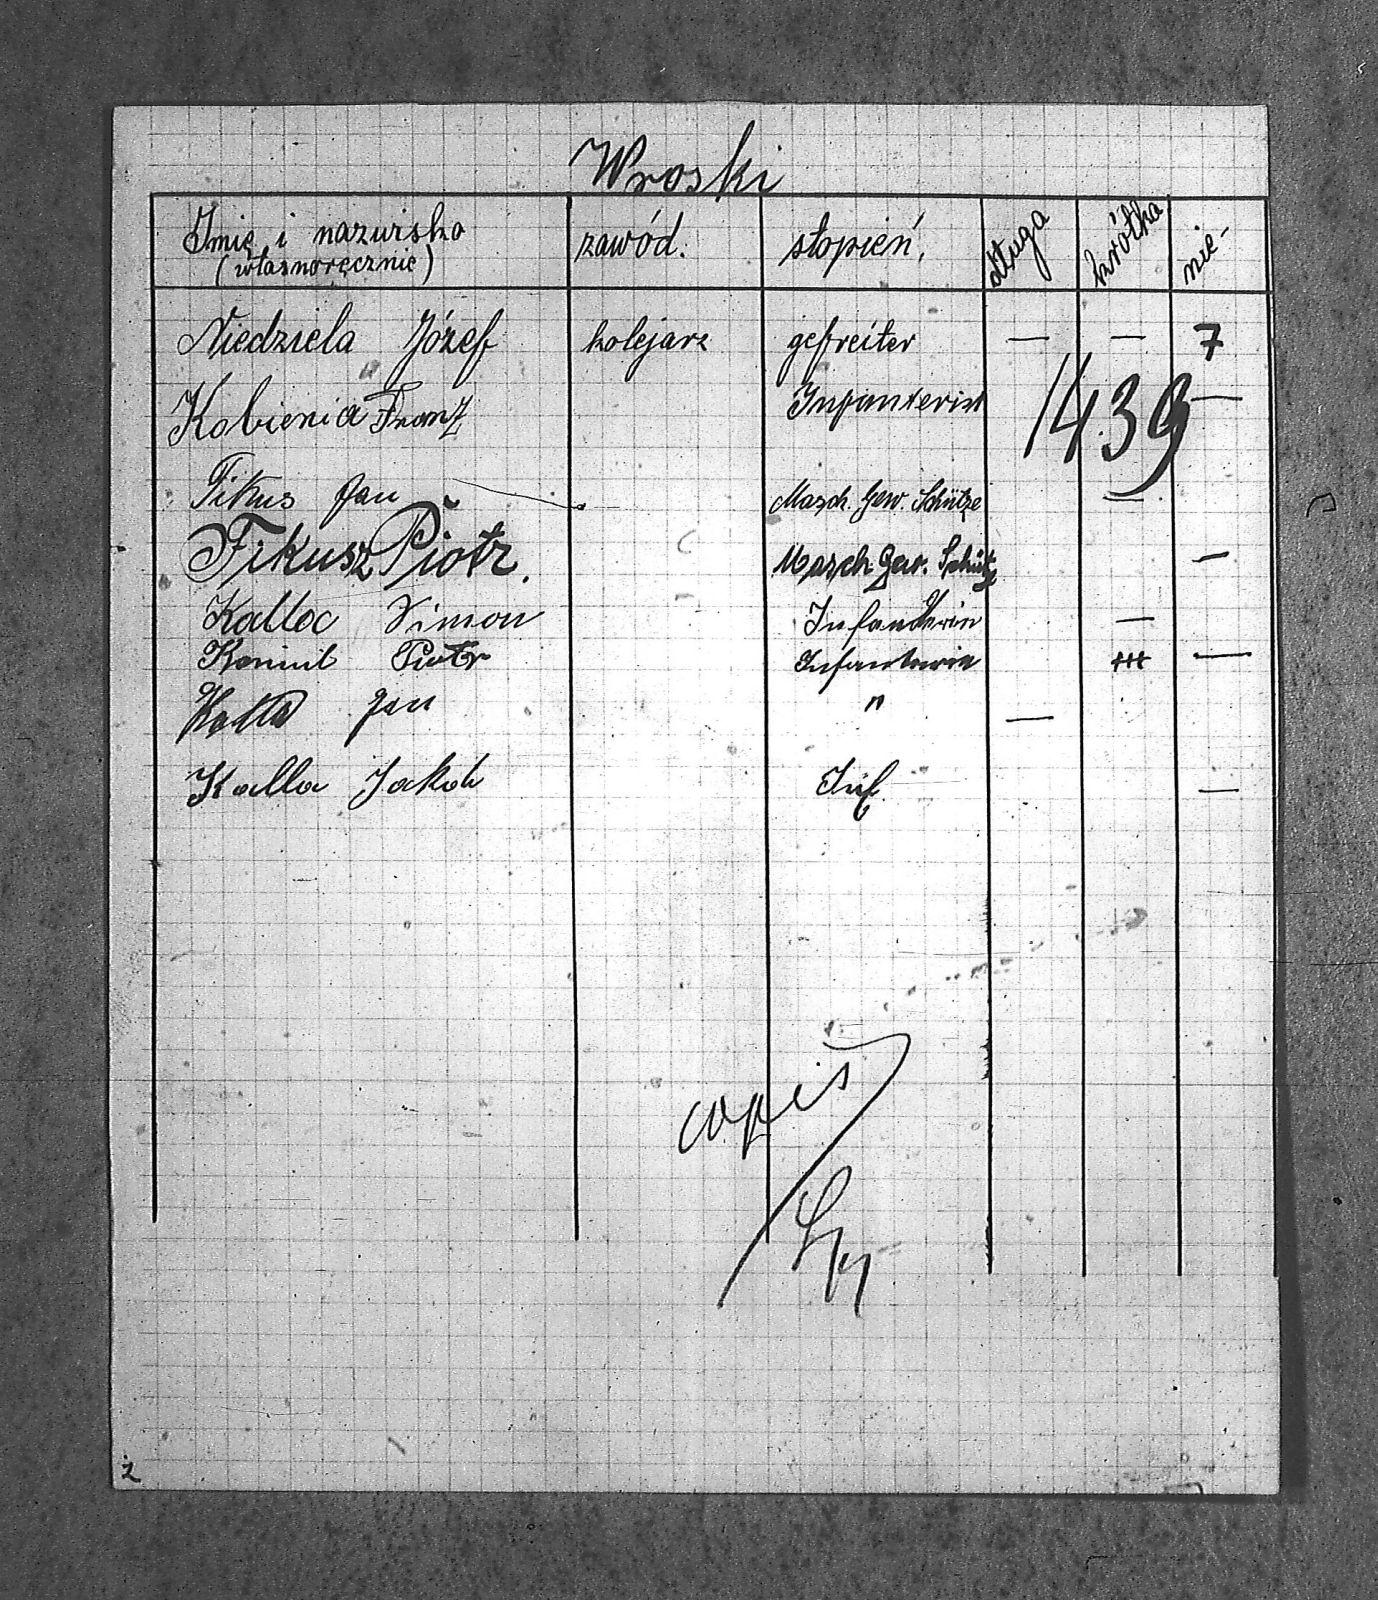 Wroski
Imię i nazwisko zawód. stopień. długa krótka nie-
(własnoręcznie)
Niedziela Józef kolejarz gefreiter — — 7
Kobienia Franz Infanterist 1439 —
Fikus Jan Masch. Gew. Schütze —
Fikusz Piotr. Masch Gew. Schütze —
Kalloc Simon —
Piotr Infanteria +++ —
Jan " —
Kalla Jakob Inf. —
2